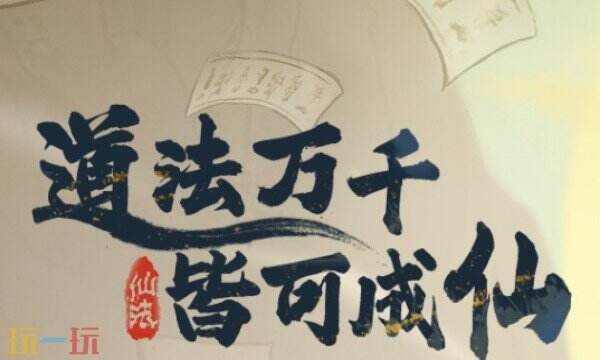 道法万千
皆可成仙
玩一玩